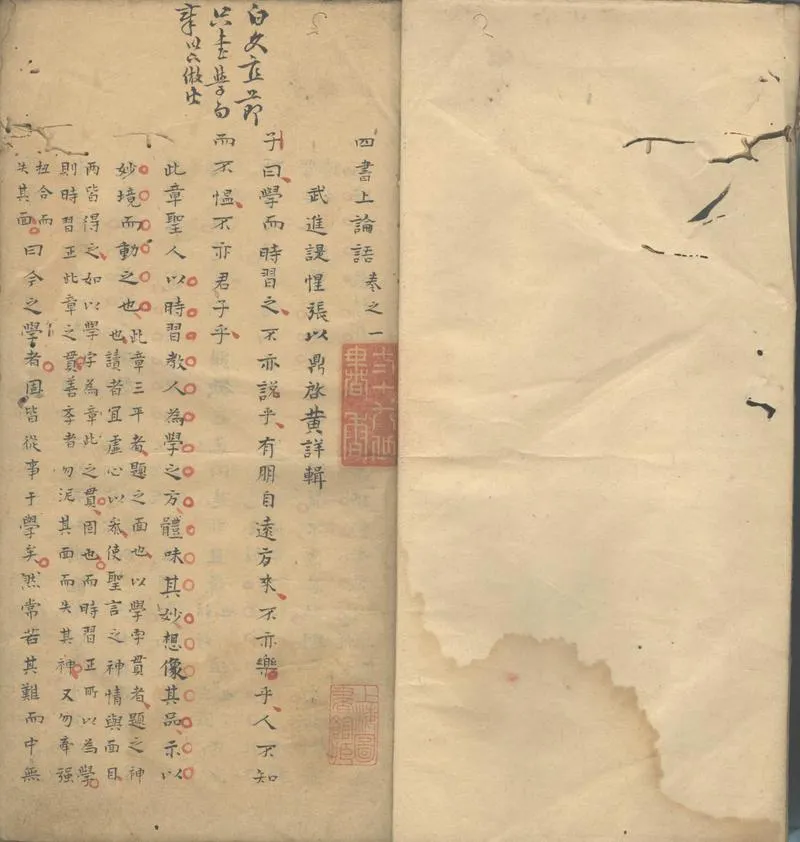 白文
四書上論語 卷之一
武進諟惺張以鼎啓黄詳輯
子曰學而時習之不亦說乎有朋自遠方來不亦樂乎人不知
而不慍不亦君子乎
此章聖人以時習教人為學之方體味其妙想像其品示以
妙境而動之也此章三平者題之面也以學字貫者題之神
也讀者宜虛心以參使聖言之神情與面目
兩皆得之如以學字為章此之貫固也而時習正所以為學
則時習正此章之貫善李者勿泥其面而失其神又勿牽强
扭合而
失其面曰今之學者固皆從事于學矣然常若其難而中無